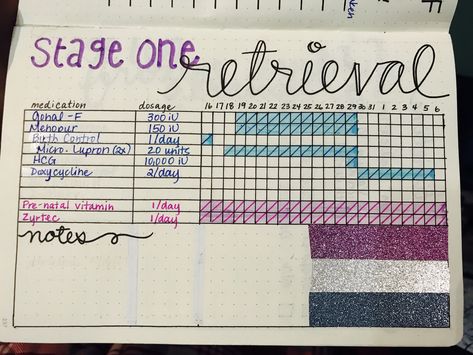 stage one
retrieval
medication dosage 16 17 18 19 20 21 22 23 24 25 26 27 28 29 30 31 1 2 3 4 5 6
Gonal-F 300 iu
Menopur 150 iu
Birth Control 1/day
Micro. Lupron (2x) 20 units
HCG 10,000 iu
Doxycycline 2/day
Pre-natal vitamin 1/day
Zyrtec 1/day
notes